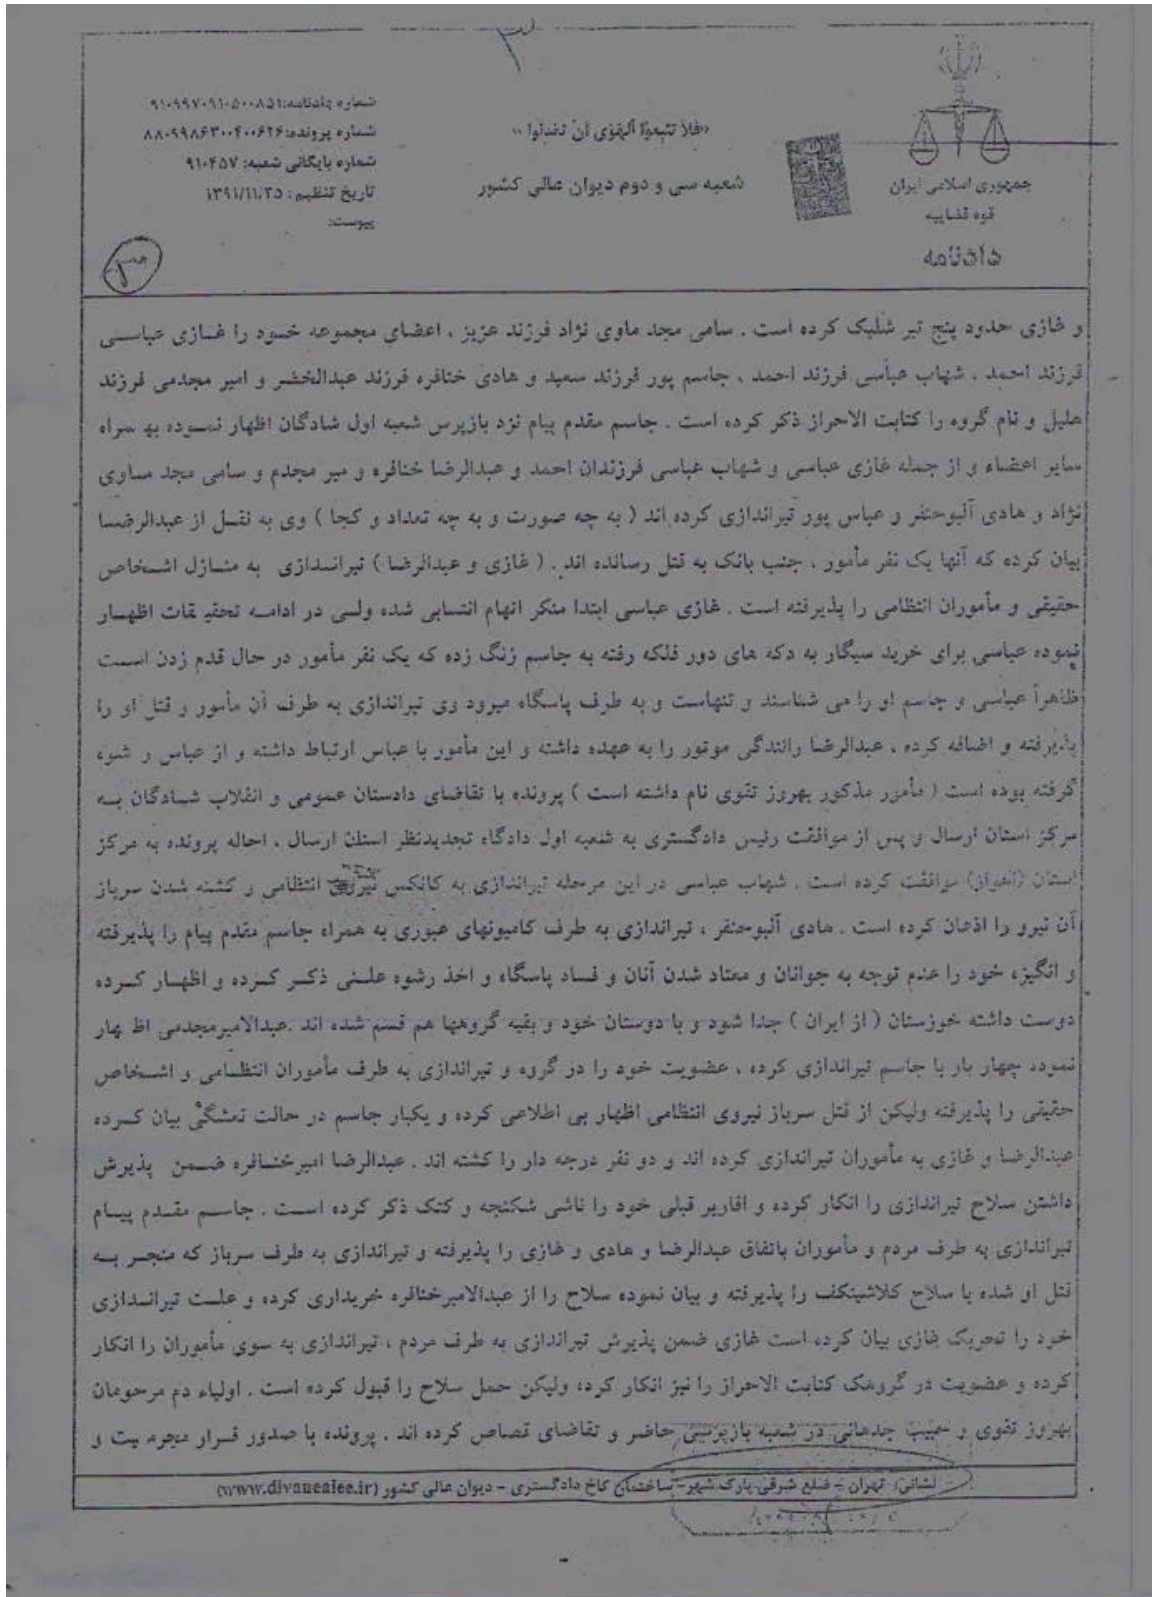 ۳
شماره دادنامه: ۹۱۰۹۹۷۰۹۱۰۵۰۰۸۵۱
شماره پرونده: ۸۸۰۹۹۸۶۳۰۰۴۰۰۶۲۶
شماره بایگانی شعبه: ۹۱۰۴۵۷
تاریخ تنظیم: ۱۳۹۱/۱۱/۲۵
پیوست:
«فلا تتبعوا الهوی أن تعدلوا»
شعبه سی و دوم دیوان عالی کشور
جمهوری اسلامی ایران
قوه قضاییه
دادنامه
و غازی حدود پنج تیر شلیک کرده است . سامی مجد ماوی نژاد فرزند عزیز ، اعضای مجموعه خود را غازی عباسی
فرزند احمد ، شهاب عباسی فرزند احمد ، جاسم پور فرزند سعید و هادی خنافره فرزند عبدالخضر و امیر مجدمی فرزند
هلیل و نام گروه را کتابت الاحراز ذکر کرده است . جاسم مقدم پیام نزد بازپرس شعبه اول شادگان اظهار نموده بهمراه
سایر اعضاء و از جمله غازی عباسی و شهاب عباسی فرزندان احمد و عبدالرضا خنافره و میر مجدم و سامی مجد مساوی
نژاد و هادی آلبوخنفر و عباس پور تیراندازی کرده اند ( به چه صورت و به چه تعداد و کجا ) وی به نقل از عبدالرضا
بیان کرده که آنها یک نفر مأمور ، جنب بانک به قتل رسانده اند . ( غازی و عبدالرضا ) تیراندازی به منازل اشخاص
حقیقی و مأموران انتظامی را پذیرفته است . غازی عباسی ابتدا منکر اتهام انتسابی شده ولی در ادامه تحقیقات اظهار
نموده عباسی برای خرید سیگار به دکه های دور فلکه رفته به جاسم زنگ زده که یک نفر مأمور در حال قدم زدن است
ظاهراً عباسی و جاسم او را می شناسند و تنهاست و به طرف پاسگاه میرود وی تیراندازی به طرف آن مأمور و قتل او را
پذیرفته و اضافه کرده ، عبدالرضا رانندگی موتور را به عهده داشته و این مأمور با عباس ارتباط داشته و از عباس و شوه
گرفته بوده است ( مأمور مذکور بهروز تقوی نام داشته است ) پرونده با تقاضای دادستان عمومی و انقلاب شادگان به
مرکز استان ارسال و پس از موافقت رئیس دادگستری به شعبه اول دادگاه تجدیدنظر استان ارسال . احاله پرونده به مرکز
استان (اهواز) موافقت کرده است . شهاب عباسی در این مرحله تیراندازی به کانکس انتظامی و کشته شدن سرباز
آن نیرو را اذعان کرده است . هادی آلبوخنفر ، تیراندازی به طرف کامیونهای عبوری به همراه جاسم مقدم پیام را پذیرفته
و انگیزه خود را عدم توجه به جوانان و معتاد شدن آنان و فساد پاسگاه و اخذ رشوه علنی ذکر کرده و اظهار کرده
دوست داشته خوزستان ( از ایران ) جدا شود و با دوستان خود و بقیه گروهها هم قسم شده اند .عبدالامیرمجدمی اظهار
نموده چهار بار با جاسم تیراندازی کرده ، عضویت خود را در گروه و تیراندازی به طرف مأموران انتظامی و اشخاص
حقیقی را پذیرفته ولیکن از قتل سرباز نیروی انتظامی اظهار بی اطلاعی کرده و یکبار جاسم در حالت بیان کرده
عبدالرضا و غازی به مأموران تیراندازی کرده اند و دو نفر درجه دار را کشته اند . عبدالرضا امیرخنافره ضمن پذیرش
داشتن سلاح تیراندازی را انکار کرده و اقاریر قبلی خود را ناشی شکنجه و کتک ذکر کرده است . جاسم مقدم پیام
تیراندازی به طرف مردم و مأموران باتفاق عبدالرضا و هادی و غازی را پذیرفته و تیراندازی به طرف سرباز که منجر به
قتل او شده با سلاح کلاشینکف را پذیرفته و بیان نموده سلاح را از عبدالامیرخنافره خریداری کرده و علت تیراندازی
خود را تحریک غازی بیان کرده است غازی ضمن پذیرش تیراندازی به طرف مردم ، تیراندازی به سوی مأموران را انکار
کرده و عضویت در گروهک کتابت الاحراز را نیز انکار کرده ولیکن حمل سلاح را قبول کرده است . اولیاء دم مرحومان
بهروز تقوی و حبیب جدهانی در شعبه بازپرسی حاضر و تقاضای قصاص کرده اند . پرونده با صدور قرار مجرمیت و
نشانی: تهران - ضلع شرقی پارک شهر - ساختمان کاخ دادگستری - دیوان عالی کشور (www.divanealee.ir)